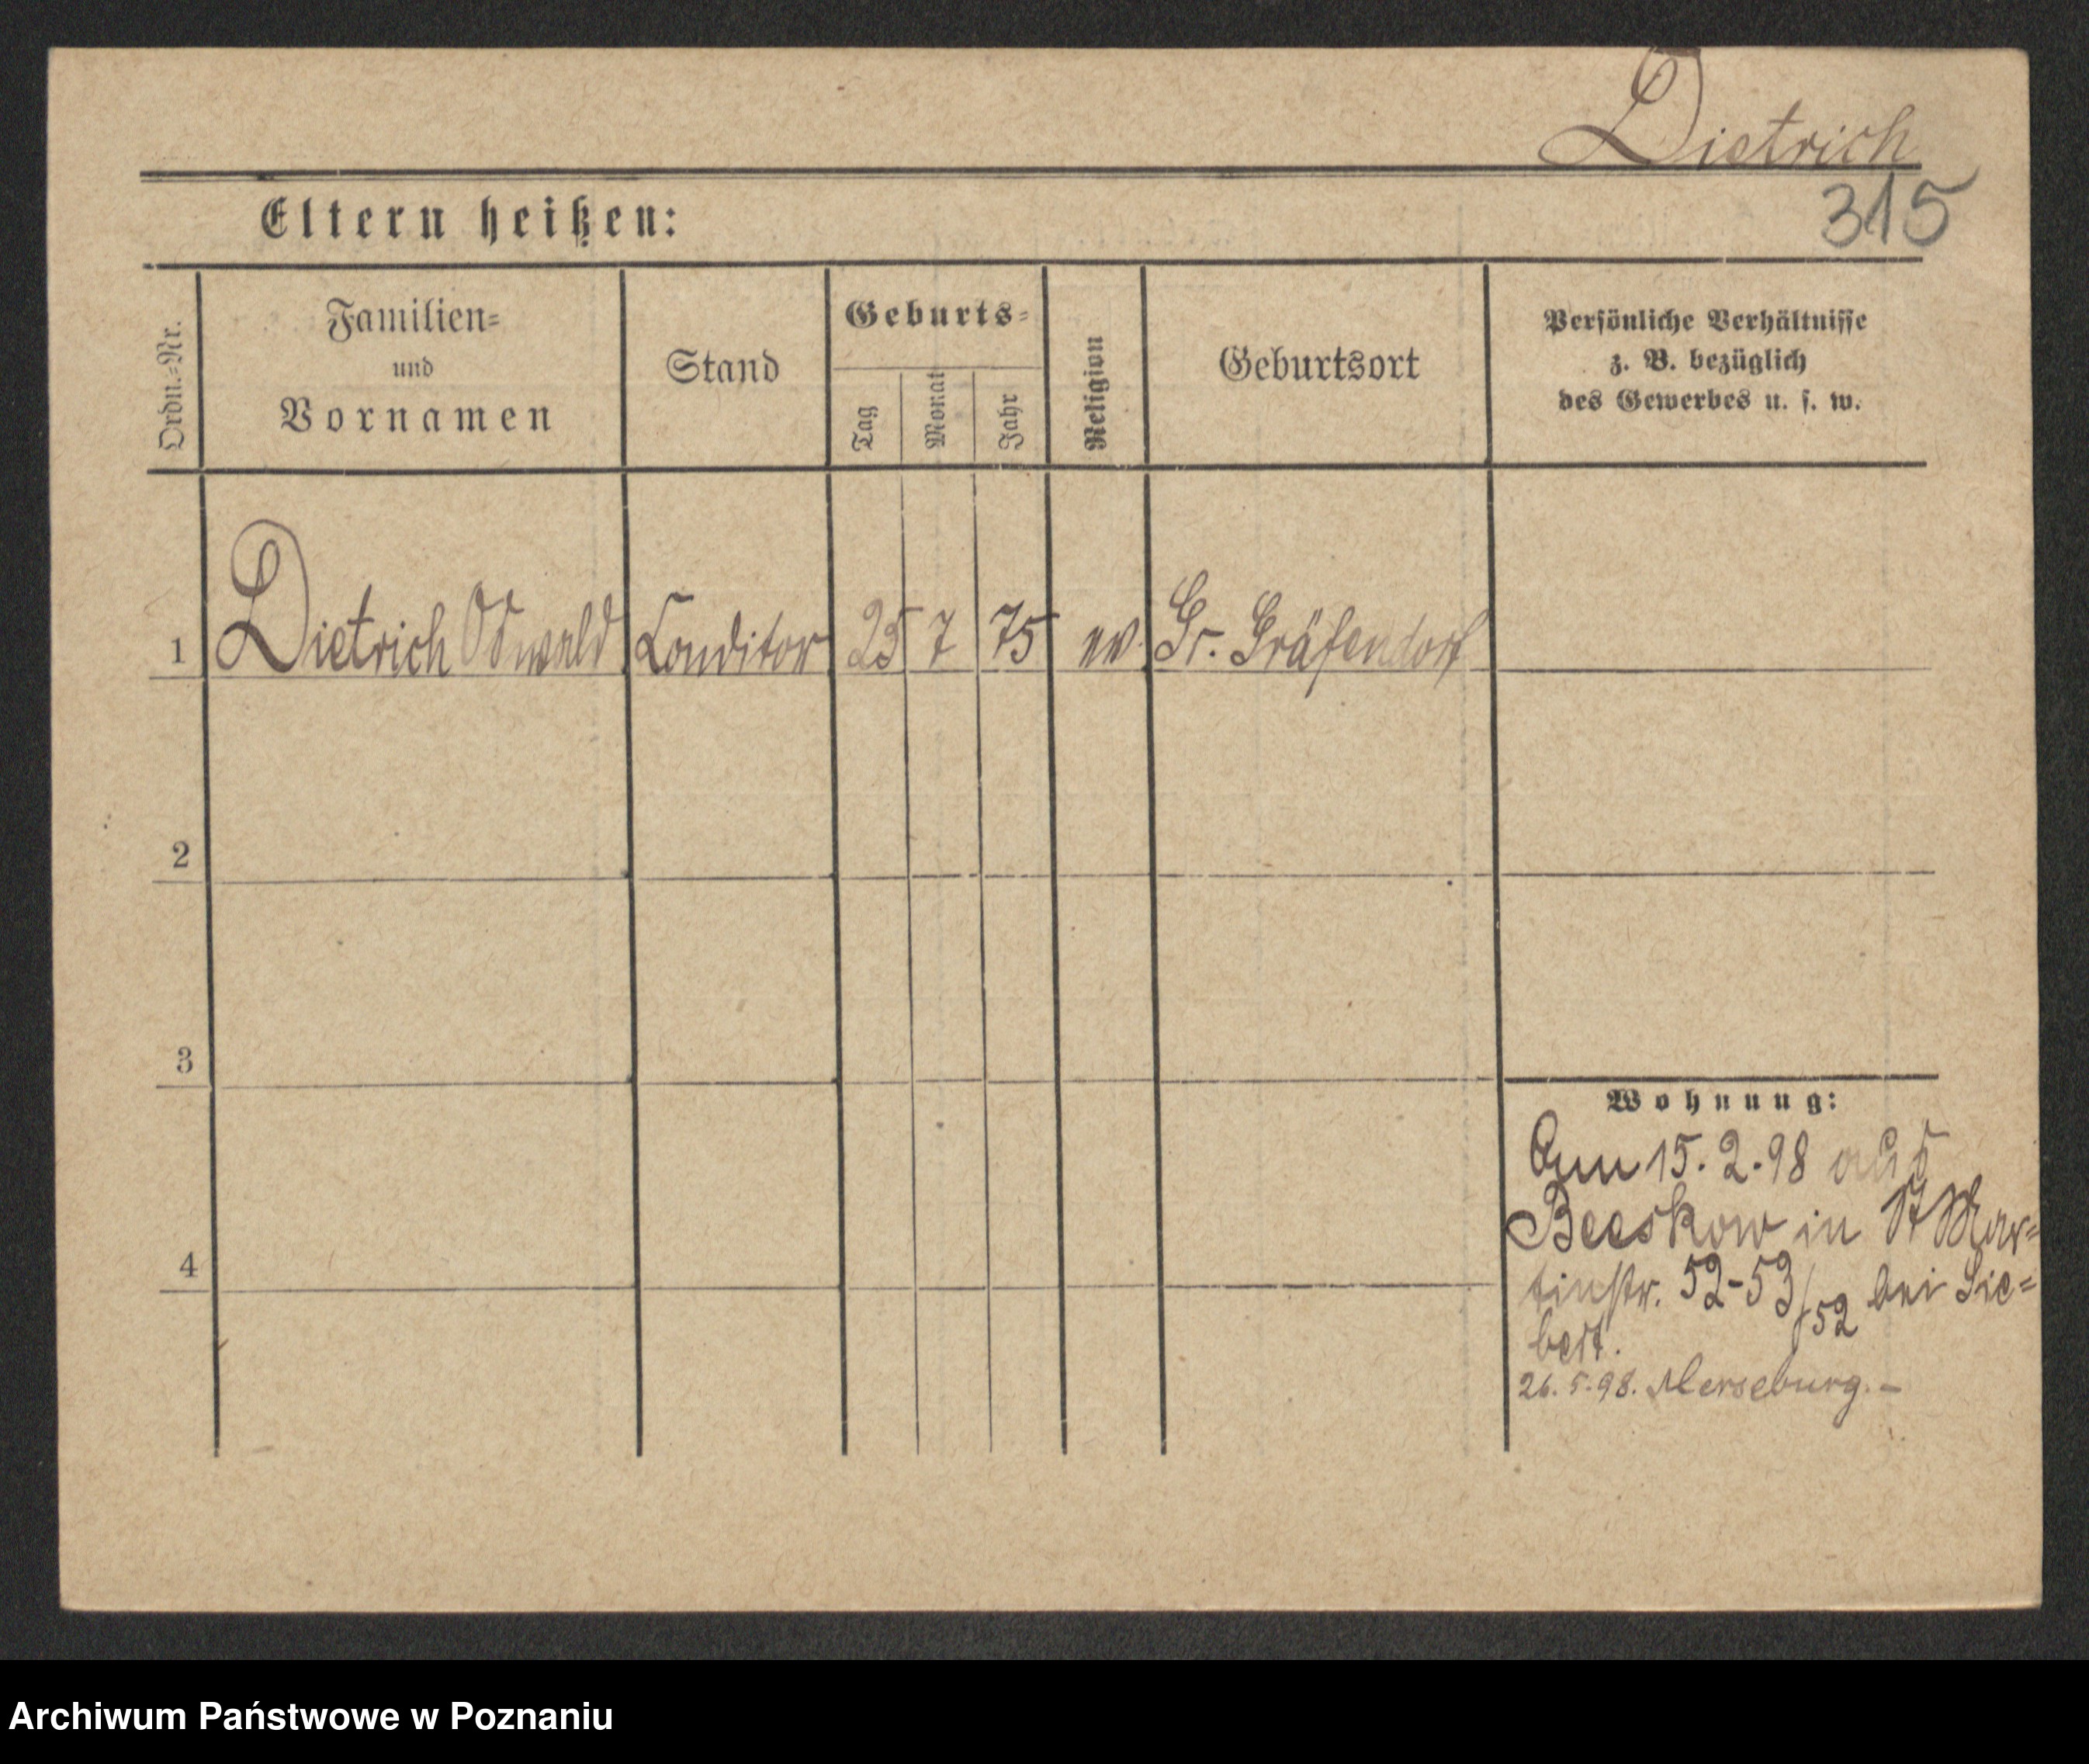 Dietrich
315
Eltern heißen:
Ordn.=Nr.
Familien=
und
Vornamen
Stand
Geburts=
Tag
Monat
Jahr
Religion
Geburtsort
Persönliche Verhältnisse
z. B. bezüglich
des Gewerbes u. s. w.
1 Dietrich Oswald Conditor 25 7 75 ev. Gr. Gräfendorf
2
3
4
Wohnung:
15. 2. 98 aus
Beeskow in St Mar=
tinstr. 52-53/52 bei Sie=
bert.
26. 5. 98. Merseburg. –
Archiwum Państwowe w Poznaniu